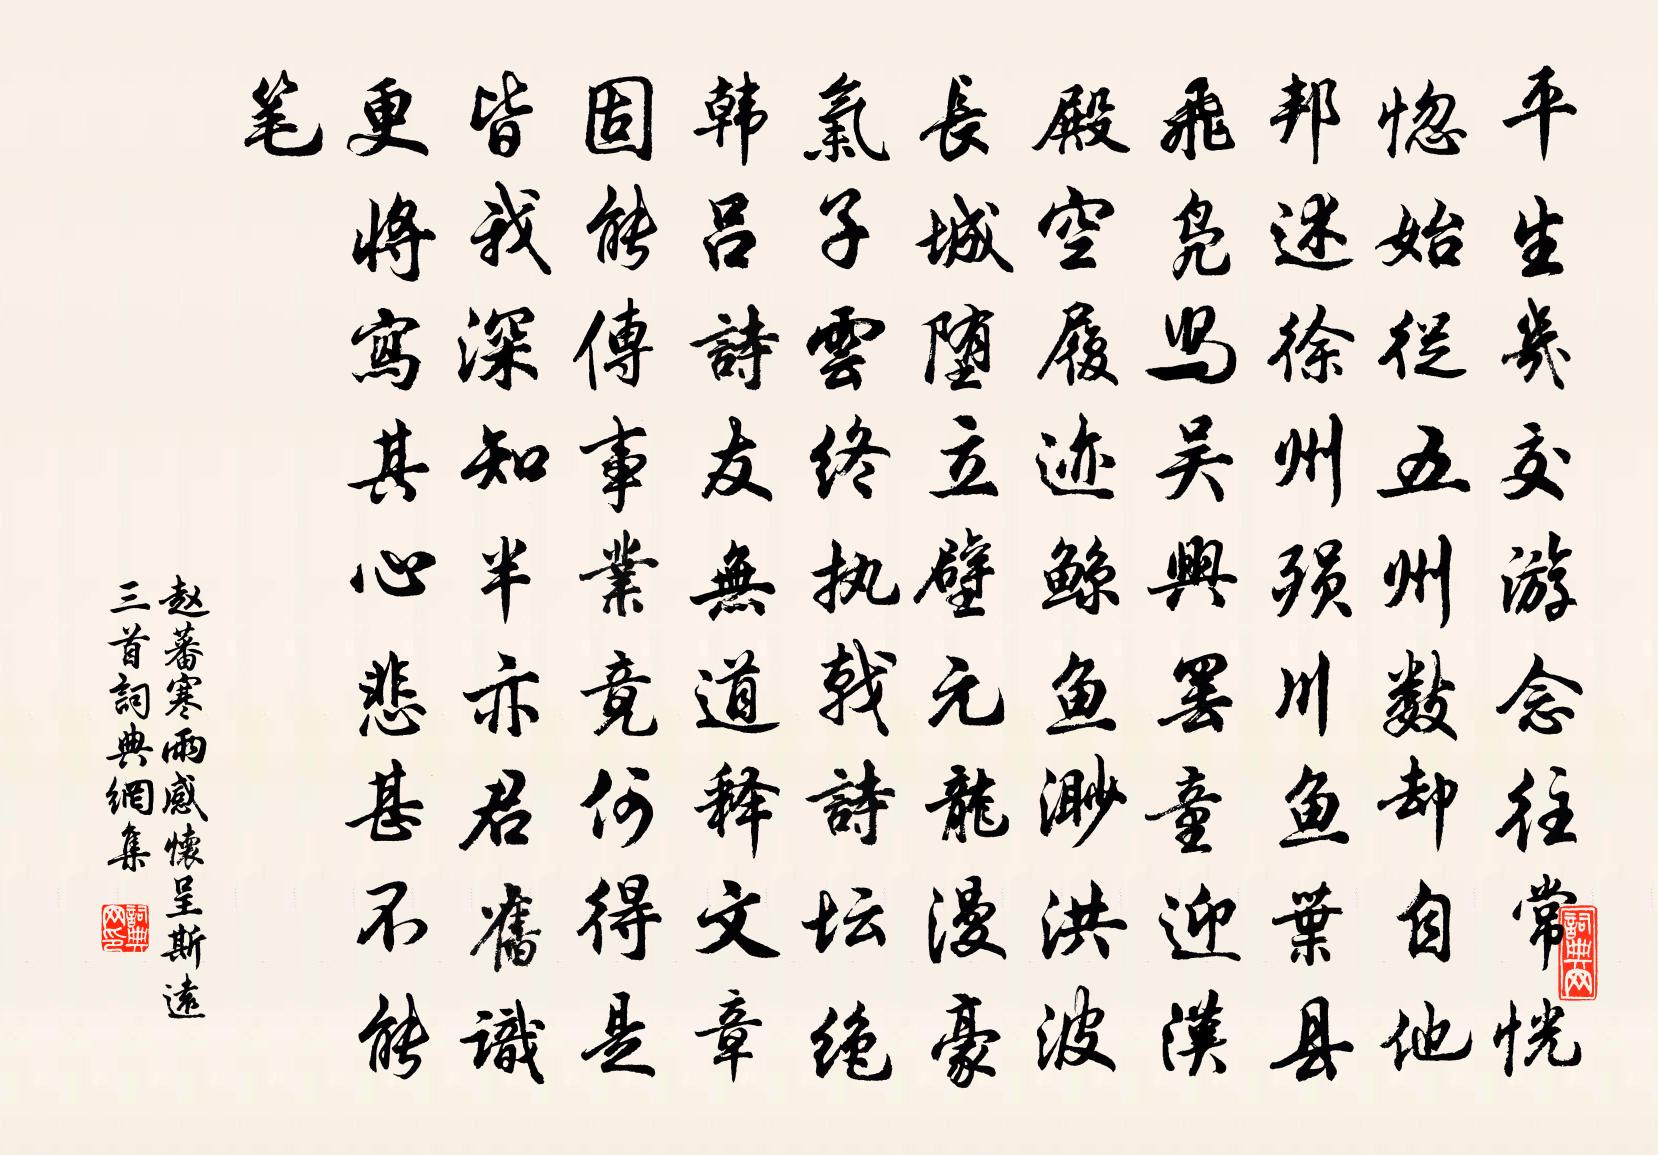 平生幾交游念往常恍
惚始從五州数却自他
邦述徐州殒川鱼葉县
飛凫舄吴興罢童迎漢
殿空履迹鲸鱼渺洪波
長城堕立壁元龍漫豪
氣子雲终执戟詩坛绝
韩吕詩友無道释文章
固能傳事業竟何得是
皆我深知半亦君舊識
更將寫其心悲甚不能
笔
赵蕃寒雨感懷呈斯遠
三首詞典網集
詞典网
詞典网印